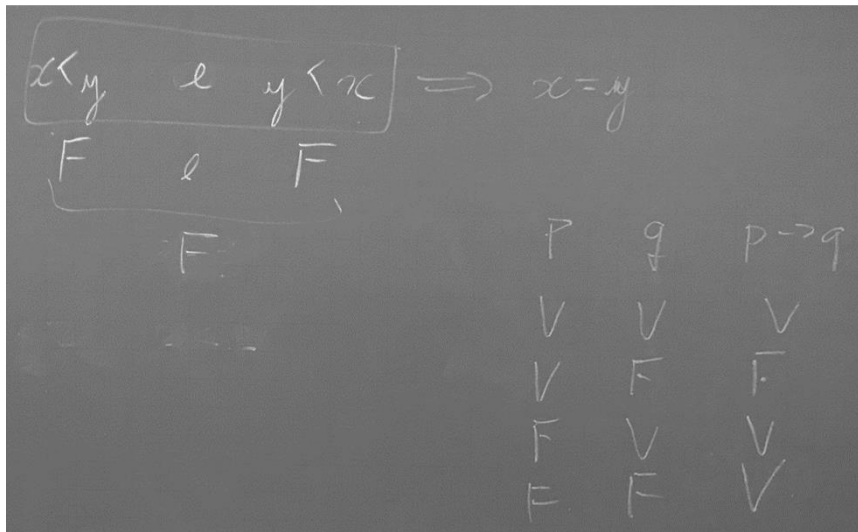 x<y e y<x ⟹ x=y
F e F
F
p q p→q
V V V
V F F
F V V
F F V